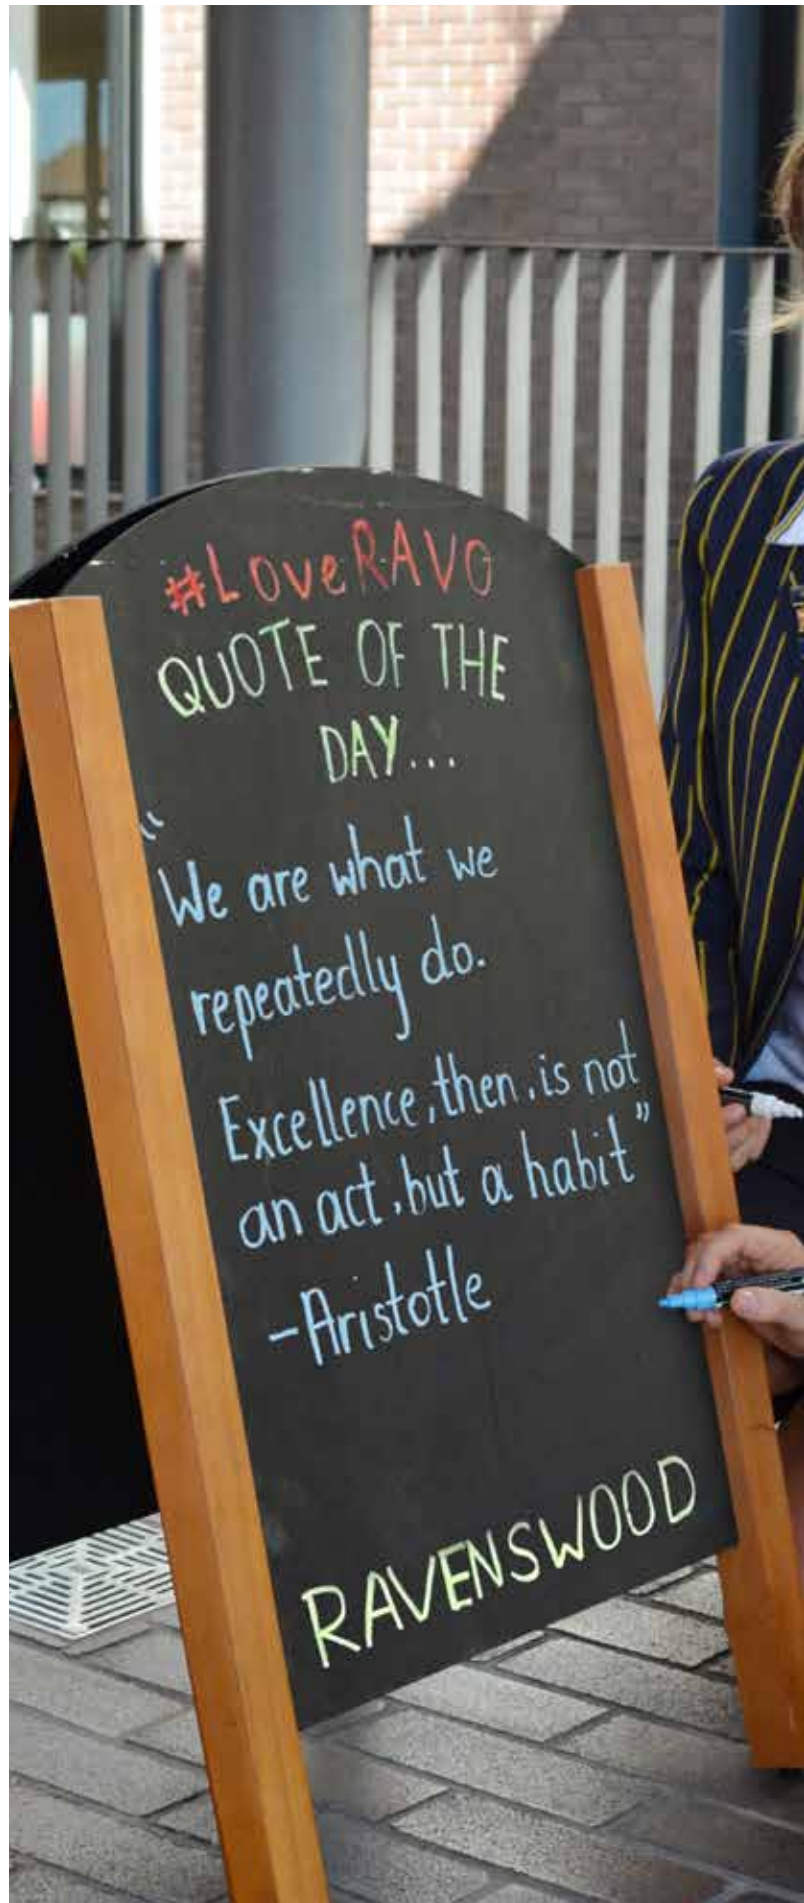 #LoveRAVO
QUOTE OF THE
DAY...
"We are what we
repeatedly do.
Excellence, then, is not
an act, but a habit"
-Aristotle
RAVENSWOOD